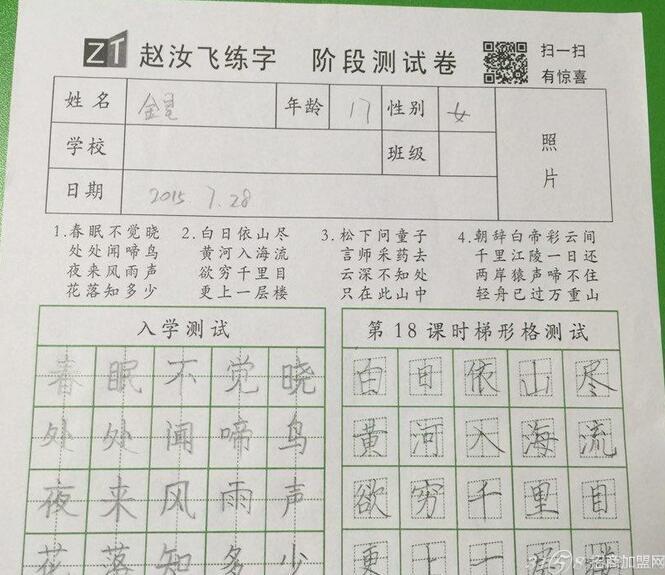 ZT 赵汝飞练字 阶段测试卷 扫一扫
有惊喜
姓名 年龄 17 性别 女
学校 班级
照片
日期 2015 7.28
1.春眠不觉晓
处处闻啼鸟
夜来风雨声
花落知多少
2.白日依山尽
黄河入海流
欲穷千里目
更上一层楼
3.松下问童子
言师采药去
云深不知处
只在此山中
4.朝辞白帝彩云间
千里江陵一日还
两岸猿声啼不住
轻舟已过万重山
入学测试
春眠不觉晓
处处闻啼鸟
夜来风雨声
花落知多少
第18课时梯形格测试
白日依山尽
黄河入海流
欲穷千里目
更上一层
3158招商加盟网